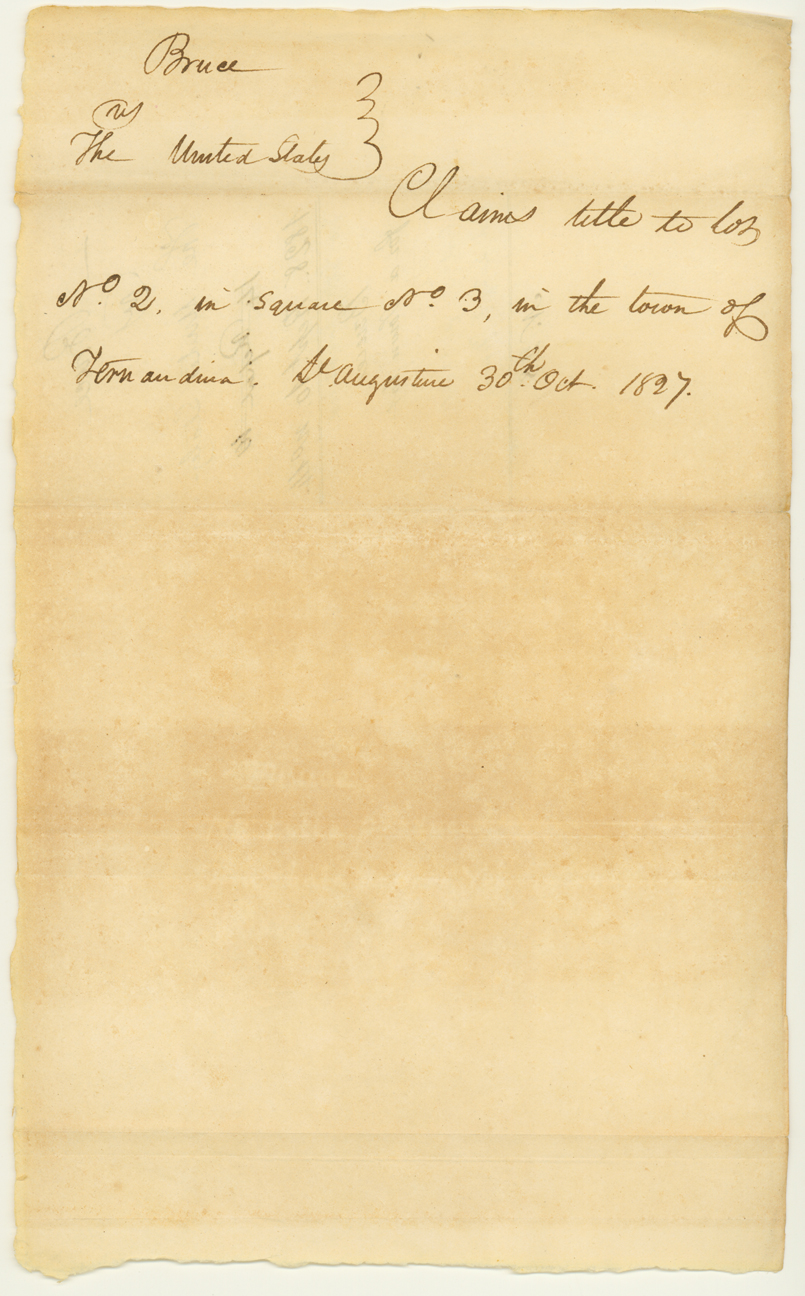 Bruce
vs
The United States
Claims title to lot
No. 2, in square No. 3, in the town of
Fernandina. St. Augustine 30th Oct. 1827.